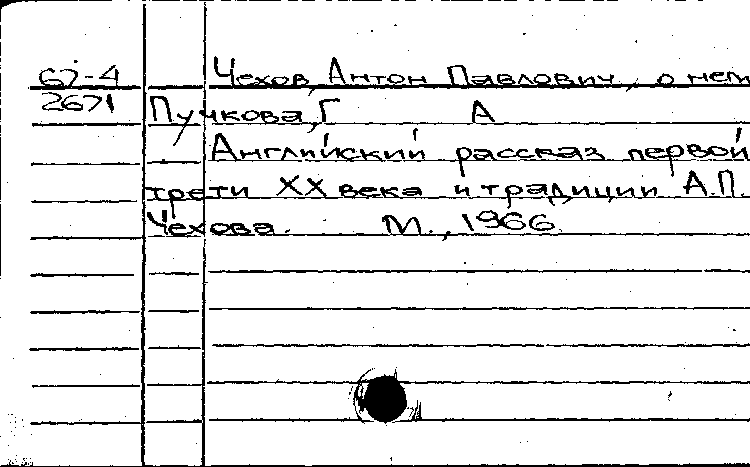 67-4 Чехов, Антон Павлович, о нем
2671 Пучкова, Г А
Английский рассказ первой
трети XX века и традиции А.П.
Чехова. М., 1966.